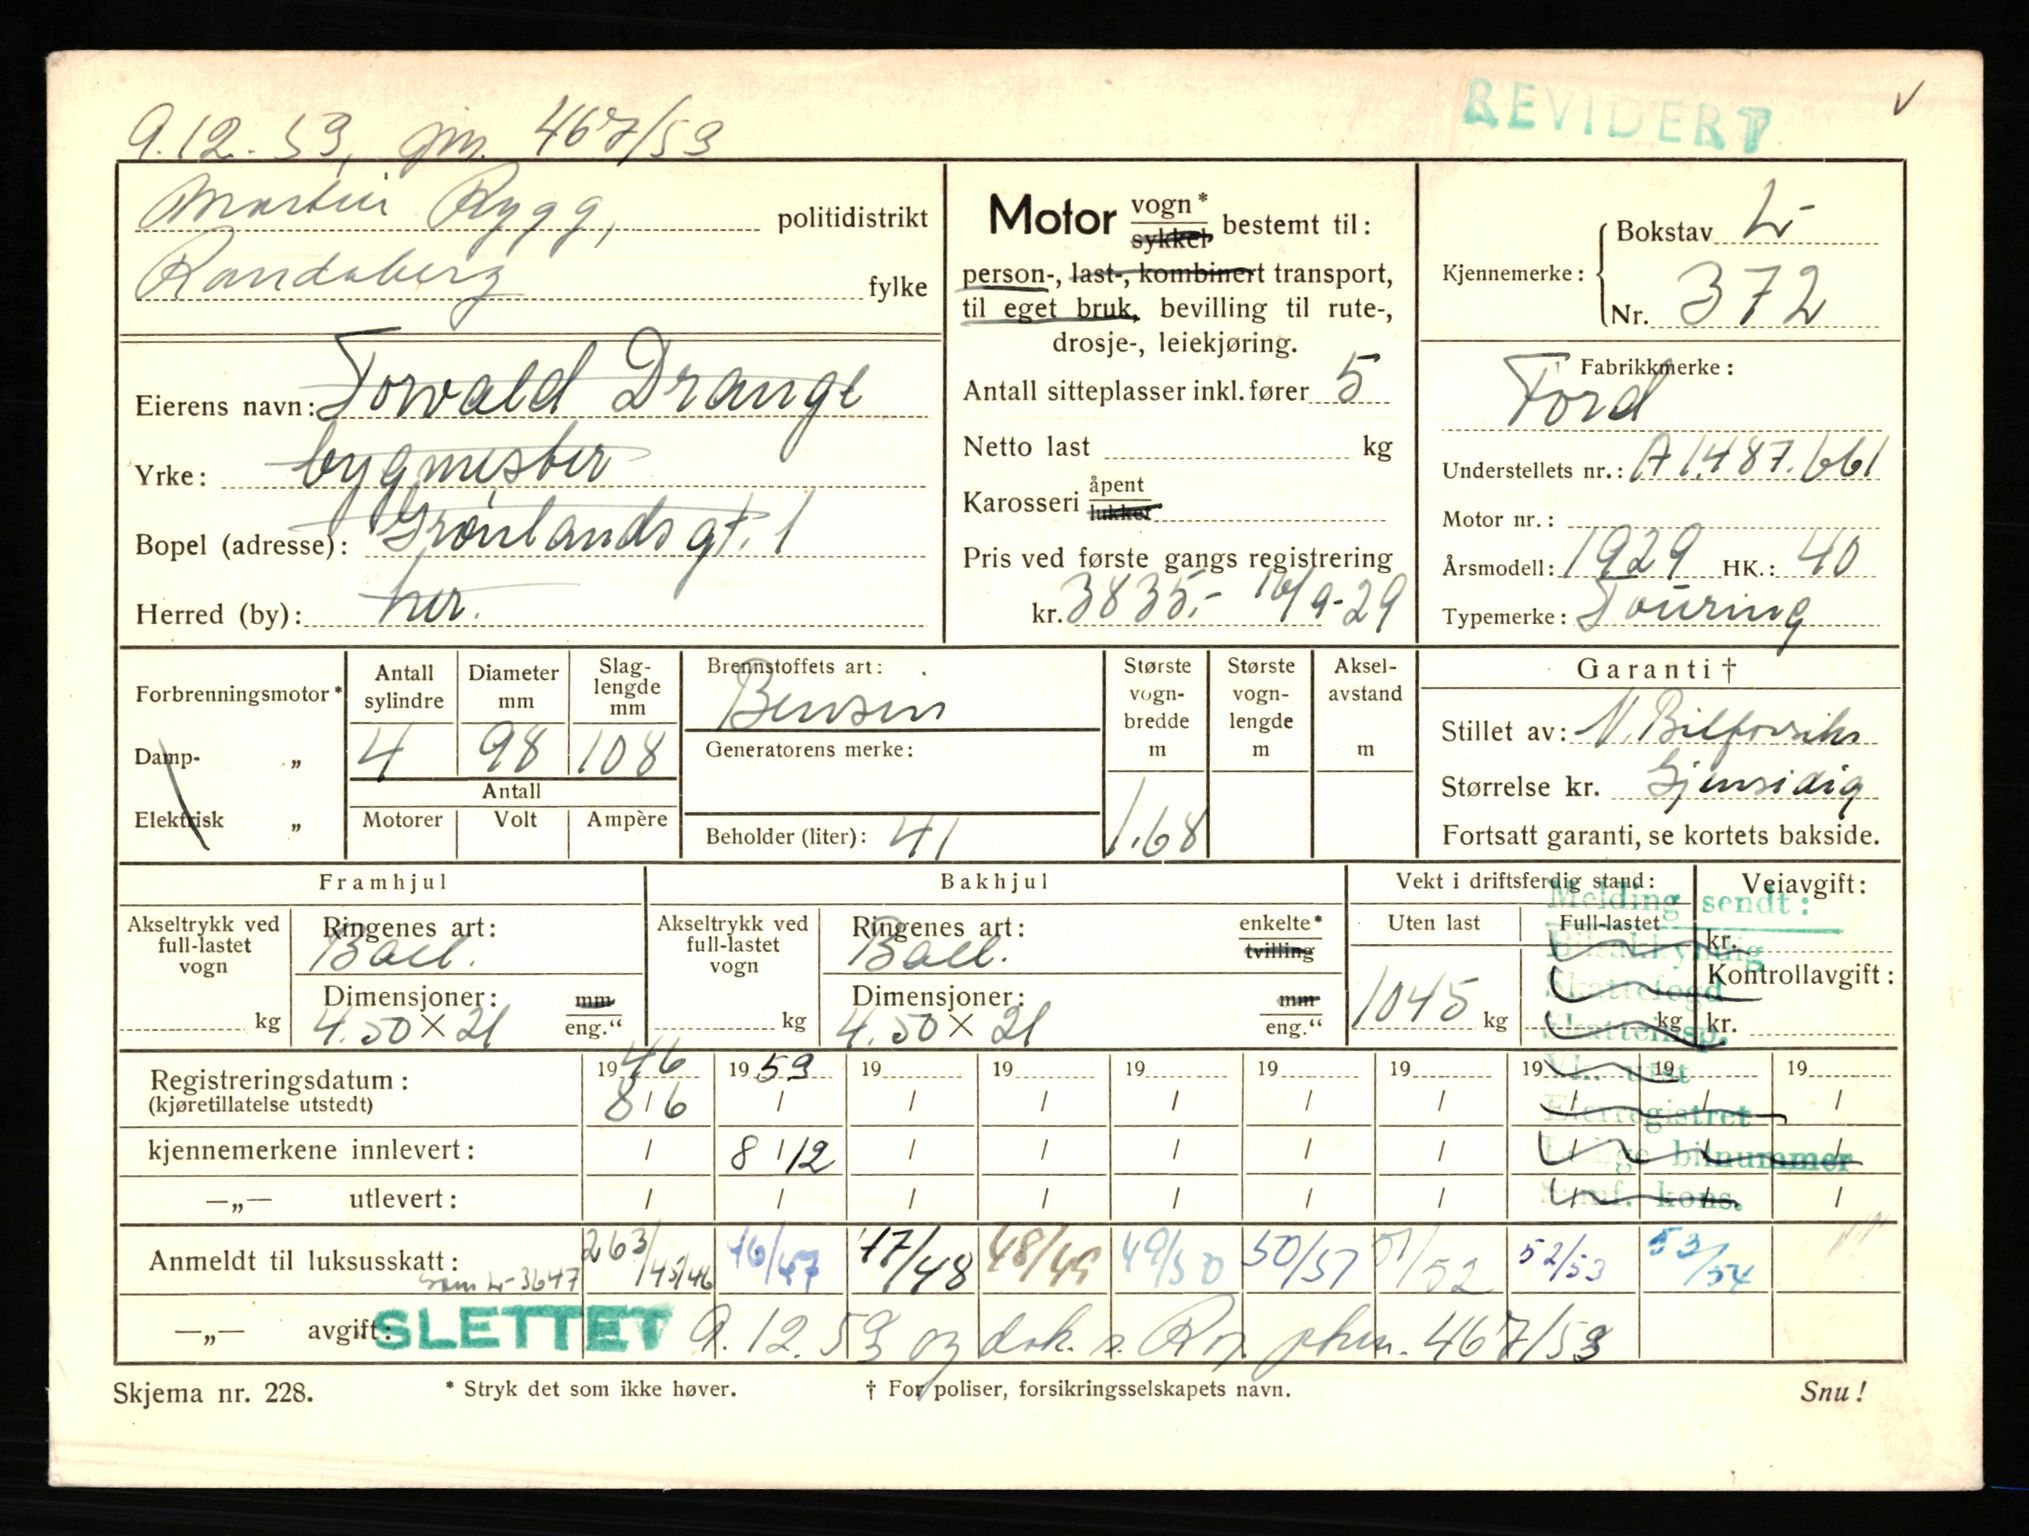 REVIDERT
9.12.53, gm. 467/53
Martin Rygg, politidistrikt
Randaberg fylke
Eierens navn: Torvald Drange
Yrke: bygmester
Bopel (adresse): Grønlandsgt. 1
Herred (by): her.
Motor vogn* sykkel bestemt til:
person-, last-, kombinert transport,
til eget bruk, bevilling til rute-,
drosje-, leiekjøring.
Antall sitteplasser inkl. fører 5
Netto last kg
Karosseri åpent lukket
Pris ved første gangs registrering
kr. 3835,- 16/9-29
Bokstav L-
Kjennemerke:
Nr. 372
Fabrikkmerke:
Ford
Understellets nr.: A1.487.661
Motor nr.:
Årsmodell: 1929 HK.: 40
Typemerke: Touring
Forbrenningsmotor*
Damp- „
Elektrisk „
Antall sylindre 4
Diameter mm 98
Slag-lengde mm 108
Antall
Motorer Volt Ampère
Brennstoffets art:
Bensin
Generatorens merke:
Beholder (liter): 41
Største vogn-bredde m 1.68
Største vogn-lengde m
Aksel-avstand m
Garanti †
Stillet av: N. Bilforsikr
Størrelse kr. Gjensidig
Fortsatt garanti, se kortets bakside.
Framhjul
Akseltrykk ved full-lastet vogn
kg
Ringenes art:
Ball.
Dimensjoner: mm
4.50 × 21 eng.“
Bakhjul
Akseltrykk ved full-lastet vogn
kg
Ringenes art: enkelte* tvilling
Ball.
Dimensjoner: mm
4.50 × 21 eng.“
Vekt i driftsferdig stand:
Uten last Full-lastet
1045 kg kg
Veiavgift:
kr.
Kontrollavgift:
kr.
Melding sendt:
Bilsakkyndig
Skattefogd
Skatteinsp.
Vk. utst
Eierregistret
Ledige bilnummer
Samf. kons.
19 46 19 53 19 19 19 19 19 19 19 19
Registreringsdatum: 8 / 6 / / / / / / / / /
(kjøretillatelse utstedt)
kjennemerkene innlevert: / 8 / 12 / / / / / / / /
—„— utlevert: / / / / / / / / / /
Anmeldt til luksusskatt: 263/45/46 46/47 47/48 48/49 49/50 50/51 51/52 52/53 53/54
som L-3647
—„— avgift: SLETTET 9.12.53 og dok. s. Rog. phm. 467/53
Skjema nr. 228. * Stryk det som ikke høver. † For poliser, forsikringsselskapets navn. Snu!